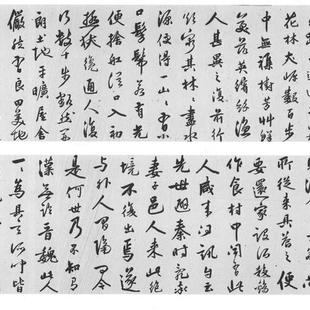 花林夾岸數百步
中無雜樹芳草鮮
美落英繽紛漁
人甚異之復前行
欲窮其林林盡水
源便得一山山有小
口髣髴若有光
便捨舡從口入初
極狹纔通人復
行數十步豁然開
朗土地平曠屋舍
儼然有良田美池
所從來具答之便
要還家設酒殺雞
作食村中聞有此
人咸來問訊自云
先世避秦時亂率
妻子邑人來此絕
境不復出焉遂
與外人間隔問今
是何世乃不知有
漢無論晉魏此人
一一為具言所聞皆